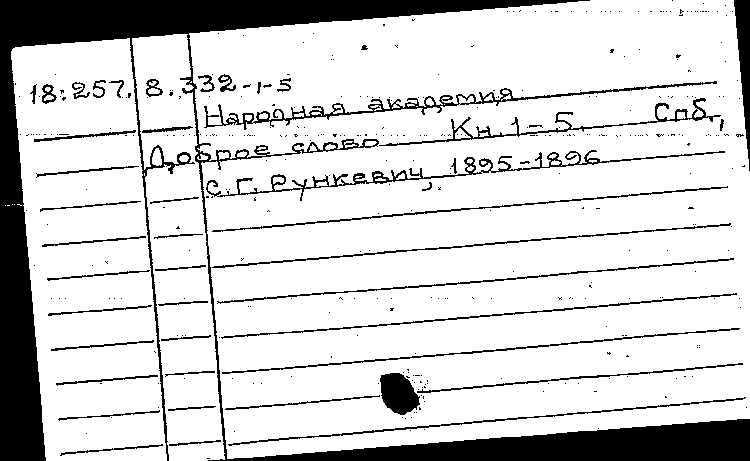 18:257.8.332-1-5
Народная академия
Доброе слово. Кн. 1-5. Спб.,
С.Г. Рункевич, 1895-1896